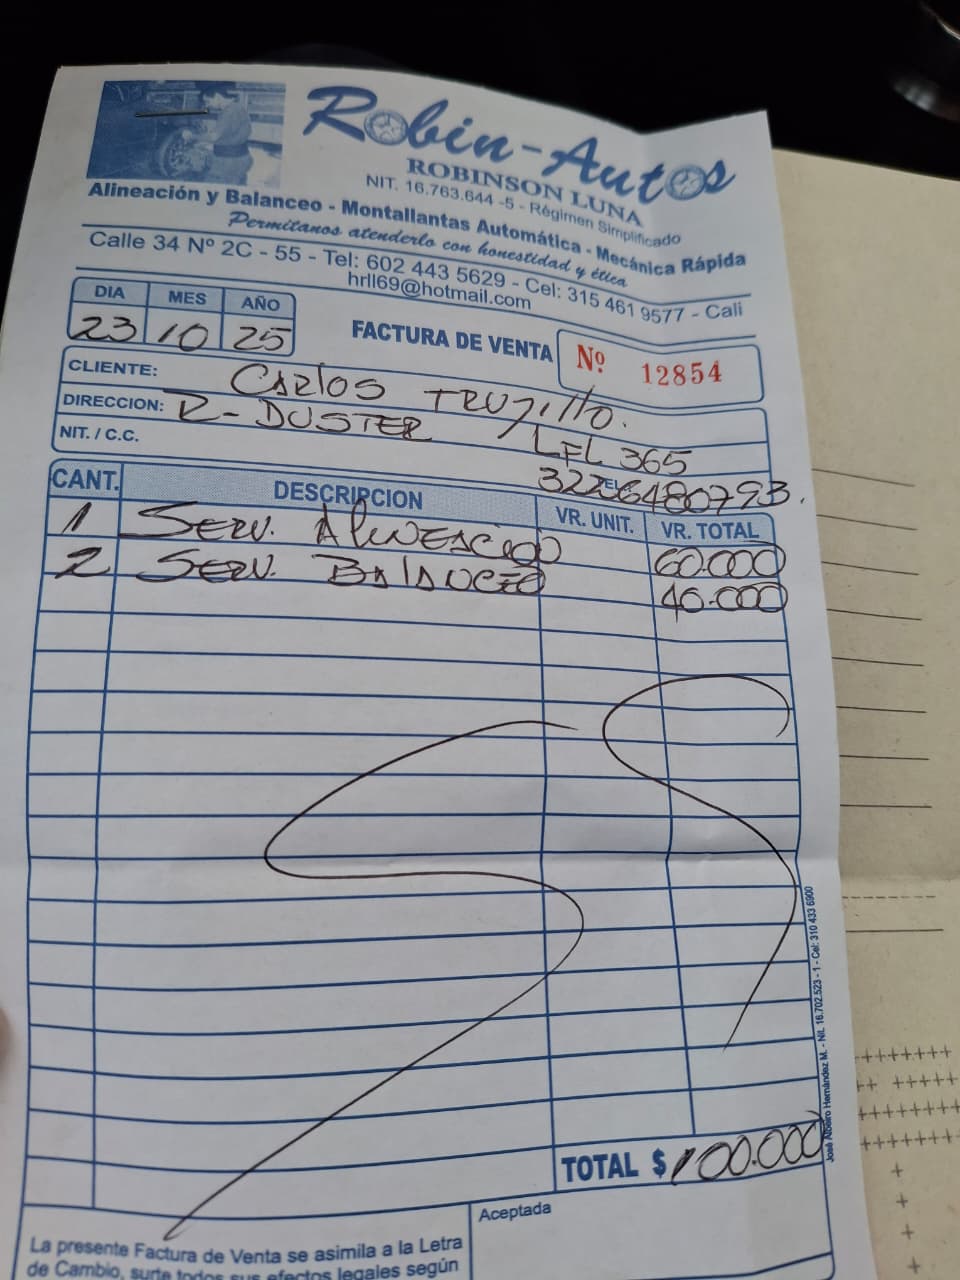 Robin-Autos
ROBINSON LUNA
NIT. 16.763.644 -5 - Régimen Simplificado
Alineación y Balanceo - Montallantas Automática - Mecánica Rápida
Permitanos atenderlo con honestidad y ética
Calle 34 Nº 2C - 55 - Tel: 602 443 5629 - Cel: 315 461 9577 - Cali
hrll69@hotmail.com
DIA MES AÑO
23 10 25
FACTURA DE VENTA Nº 12854
CLIENTE: CARlOS TRUJIllO.
DIRECCION: R- DUSTER LFL 365
NIT. / C.C. TEL 3226480793.
CANT. DESCRIPCION VR. UNIT. VR. TOTAL
1 SERV. AlINEACIÓN 60.000
2 SERV. BAlANCEO 40.000
TOTAL $ 100.000
Aceptada
La presente Factura de Venta se asimila a la Letra
de Cambio, surte todos sus efectos legales según
José Albeiro Hernández M. - Nit. 16.702.523 - 1 - Cel: 310 433 6900